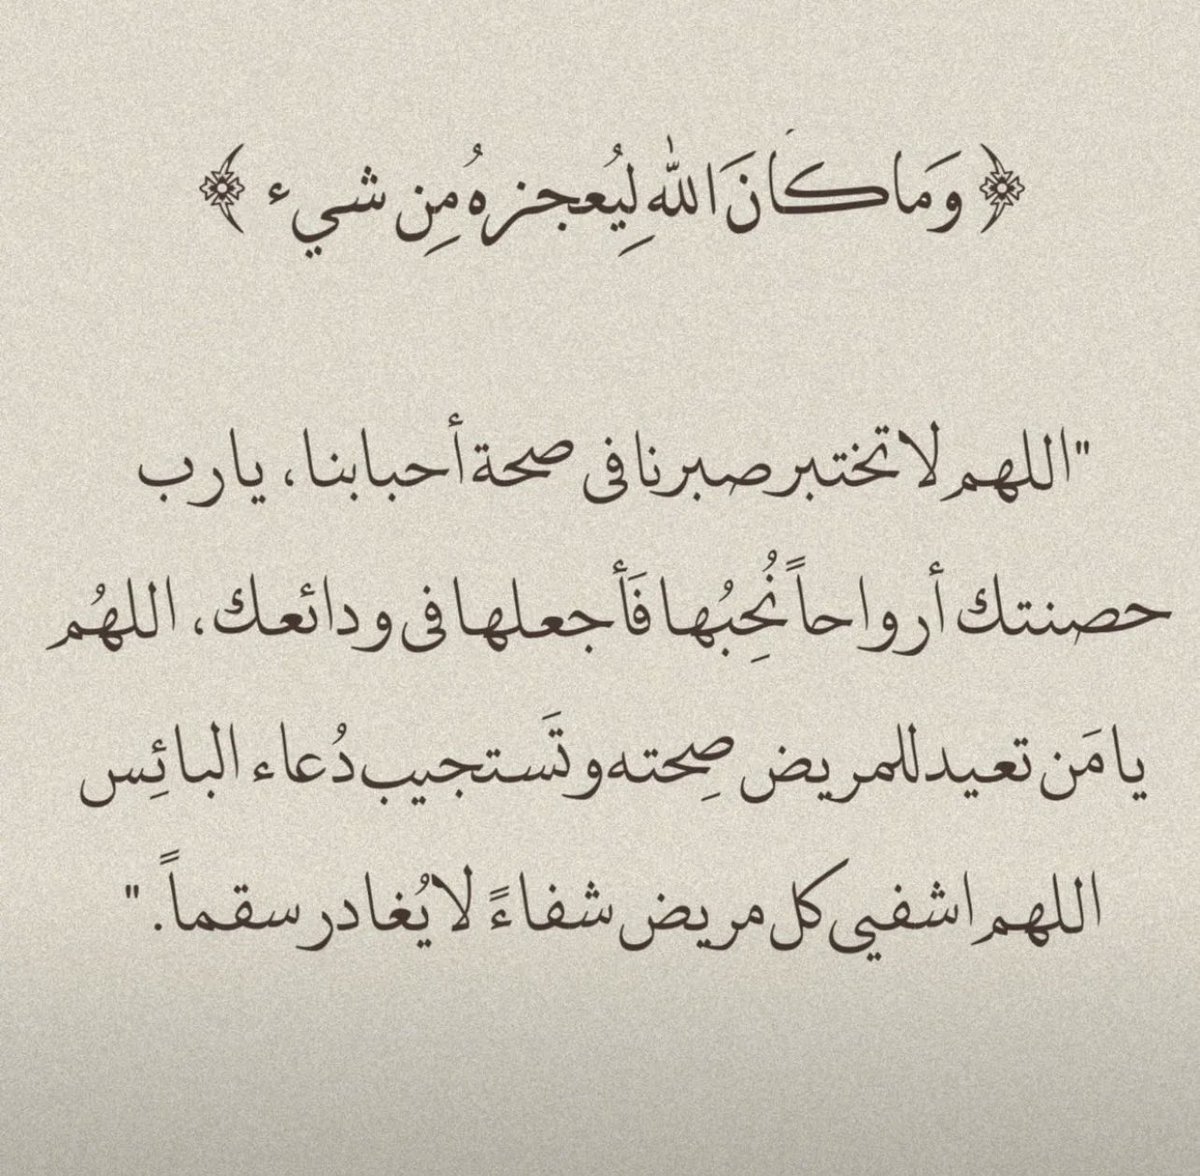 ﴿ وَمَا كَانَ اللّٰه لِيُعجزهُ مِن شيء ﴾
"اللهم لا تختبر صبرنا فى صحة أحبابنا، يارب
حصنتك أرواحاً نُحِبُها فَأجعلها فى ودائعك، اللهُم
يا مَن تعيد للمريض صِحته وتَستجيب دُعاء البائِس
اللهم اشفيي كل مريض شفاءً لا يُغادر سقماً."